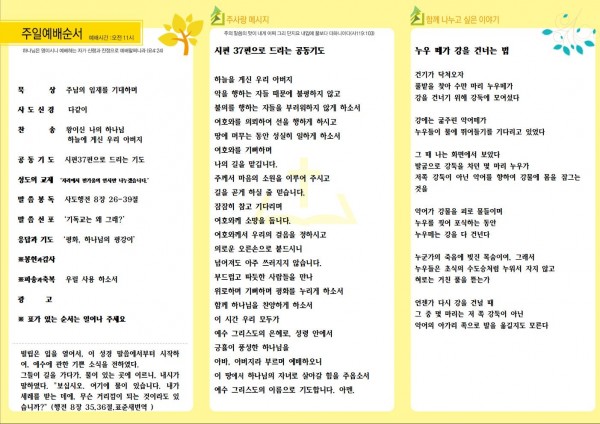 주일예배순서
예배시간 : 오전11시
하나님은 영이시니 예배하는 자가 신령과 진정으로 예배할찌니라 (요4:24)
묵 상 주님의 임재를 기대하며
사 도 신 경 다같이
찬 송 왕이신 나의 하나님
하늘에 계신 우리 아버지
공 동 기 도 시편37편으로 드리는 기도
성도의 교제 "자리에서 반가움의 인사만 나누겠습니다."
말 씀 봉 독 사도행전 8장 26-39절
말 씀 선 포 '기독교는 왜 그래?'
응답과 기도 '평화, 하나님의 평강이'
※봉헌과감사
※파송과축복 우릴 사용 하소서
광 고
※ 표가 있는 순서는 일어나 주세요
빌립은 입을 열어서, 이 성경 말씀에서부터 시작하
여, 예수에 관한 기쁜 소식을 전하였다.
그들이 길을 가다가, 물이 있는 곳에 이르니, 내시가
말하였다. "보십시오, 여기에 물이 있습니다. 내가
세례를 받는 데에, 무슨 거리낌이 되는 것이라도 있
습니까?" (행전 8장 35,36절,표준새번역 )
주사랑 메시지
주의 말씀의 맛이 내게 어찌 그리 단지요 내입에 꿀보다 더하니이다(시119:103)
시편 37편으로 드리는 공동기도
하늘을 계신 우리 아버지
악을 행하는 자들 때문에 불평하지 않고
불의를 행하는 자들을 부러워하지 않게 하소서
여호와를 의뢰하여 선을 행하게 하시고
땅에 머무는 동안 성실히 일하게 하소서
여호와를 기뻐하며
나의 길을 맡깁니다.
주께서 마음의 소원을 이루어 주시고
길을 곧게 하실 줄 믿습니다.
잠잠히 참고 기다리며
여호와께 소망을 둡니다.
여호와께서 우리의 걸음을 정하시고
의로운 오른손으로 붙드시니
넘어져도 아주 쓰러지지 않습니다.
부드럽고 따듯한 사람들을 만나
위로하며 기뻐하며 평화를 누리게 하소서
함께 하나님을 찬양하게 하소서
이 시간 우리 모두가
예수 그리스도의 은혜로, 성령 안에서
긍휼이 풍성한 하나님을
아바, 아버지라 부르며 예배하오니
이 땅에서 하나님의 자녀로 살아갈 힘을 주옵소서
예수 그리스도의 이름으로 기도합니다. 아멘.
함께 나누고 싶은 이야기
누우 떼가 강을 건너는 법
건기가 닥쳐오자
풀밭을 찾아 수만 마리 누우떼가
강을 건너기 위해 강둑에 모여섰다
강에는 굶주린 악어떼가
누우들이 물에 뛰어들기를 기다리고 있었다
그 때 나는 화면에서 보았다
발굽으로 강둑을 차던 몇 마리 누우가
저쪽 강둑이 아닌 악어를 향하여 강물에 몸을 잠그는
것을
악어가 강물을 피로 물들이며
누우를 찢어 포식하는 동안
누우떼는 강을 다 건넌다
누군가의 죽음에 빚진 목숨이여, 그래서
누우들은 초식의 수도승처럼 누워서 자지 않고
혀로는 거친 풀을 뜯는가
언젠가 다시 강을 건널 때
그 중 몇 마리는 저 쪽 강둑이 아닌
악어의 아가리 쪽으로 발을 옮길지도 모른다